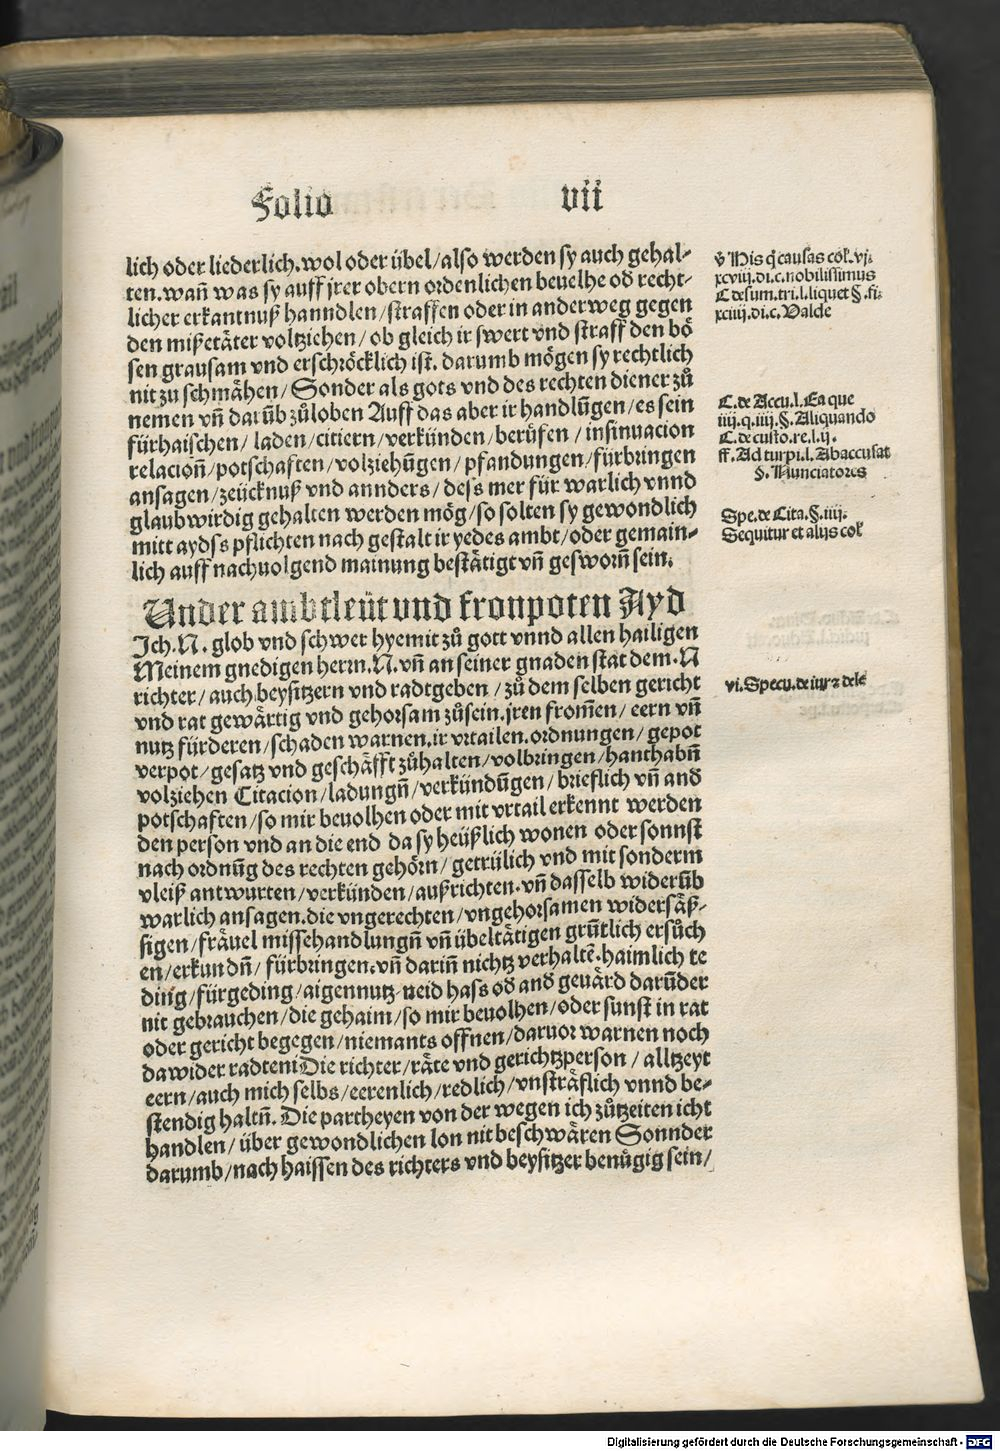 Folio vii
lich oder liederlich. wol oder übel/also werden sy auch gehal-
ten. wañ was sy auff jrer obern ordenlichen beuelhe od recht-
licher erkantnuß hanndlen/straffen oder in ander weg gegen
den mißetäter voltziehen/ob gleich ir swert vnd straff den bö
sen grausam vnd erschröcklich ist. darumb mögen sy rechtlich
nit zu schmähen/Sonder als gots vnd des rechten diener zů
nemen vñ darũb zůloben Auff das aber ir handlũgen/es sein
fürhaischen/laden/citiern/verkünden/berůfen/insinuacion
relacioñ/potschaften/volziehũgen/pfandungen/fürbringen
ansagen/zeücknuß vnd annders/dess mer für warlich vnnd
glaubwirdig gehalten werden mög/so solten sy gewondlich
mitt aydss pflichten nach gestalt ir yedes ambt/oder gemain-
lich auff nachuolgend mainung bestätigt vñ gesworñ sein.
Under ambtleüt und fronpoten Ayd
Ich. N. glob vnd schwer hyemit zů gott vnnd allen hailigen
Meinem gnedigen herrn. N. vñ an seiner gnaden stat dem. N
richter/auch beysitzern vnd radtgeben/zů dem selben gericht
vnd rat gewärtig vnd gehorsam zůsein. jren from̃en/eern vñ
nutz fürderen/schaden warnen. ir vrtailen. ordnungen/gepot
verpot/gesatz vnd geschäfft zůhalten/volbringen/hanthabñ
volziehen Citacion/ladungñ/verkündũgen/brieflich vñ and
potschaften/so mir beuolhen oder mit vrtail erkennt werden
den person vnd an die end da sy heüßlich wonen oder sonnst
nach ordnũg des rechten gehörn/getrülich vnd mit sonderm
vleiß antwurten/verkünden/außrichten. vñ dasselb widerũb
warlich ansagen. die vngerechten/vngehorsamen widersäß-
sigen/fräuel missehandlungñ vñ übeltätigen grũtlich ersůch
en/erkundñ/fürbringen. vñ dariñ nichtz verhaltẽ. haimlich te
ding/fürgeding/aigennutz neid hass od and geuärd darũder
nit gebrauchen/die gehaim/so mir beuolhen/oder sunst in rat
oder gericht begegen/niemants offnen/daruor warnen noch
dawider radten Die richter/räte vnd gerichtzperson/alltzeyt
eern/auch mich selbs/eerenlich/redlich/vnsträflich vnnd be-
stendig haltñ. Die partheyen von der wegen ich zůtzeiten icht
handlen/über gewondlichen lon nit beschwären Sonnder
darumb/nach haissen des richters vnd beysitzer benügig sein/
v̓ His q̃ causas col̃. vj.
xcviij. di. c. nobilissimus
C de sum. tri. l. liquet §. fi.
xciiij. di. c. Valde
C. de Accu. l. Ea que
iiij. q. iiij. §. Aliquando
C. de custo. re. l. ij.
ff. Ad turpi. l. Abaccusat
§. Nunciatores
Spe. de Cita. §. iiij.
Sequitur et alijs col̃
vi. Specu. de iur ⁊ dele
Digitalisierung gefördert durch die Deutsche Forschungsgemeinschaft - DFG